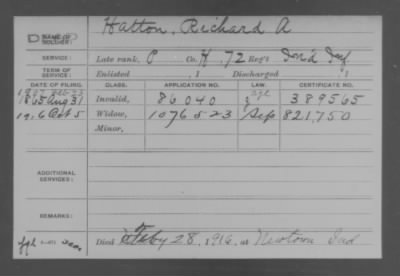 Hatton, Richard A
NAME OF SOLDIER:
SERVICE: Late rank, P Co. H, 72 Reg't Ind'a Inf
TERM OF SERVICE: Enlisted , 1 Discharged , 1
DATE OF FILING. CLASS. APPLICATION NO. LAW. CERTIFICATE NO.
1865 Aug 31 Invalid, 86040 389565
1916 Oct 5 Widow, 1076523 Sep 821,750
Minor,
ADDITIONAL SERVICES:
REMARKS:
Died Feby 28, 1916, at Newtown Ind